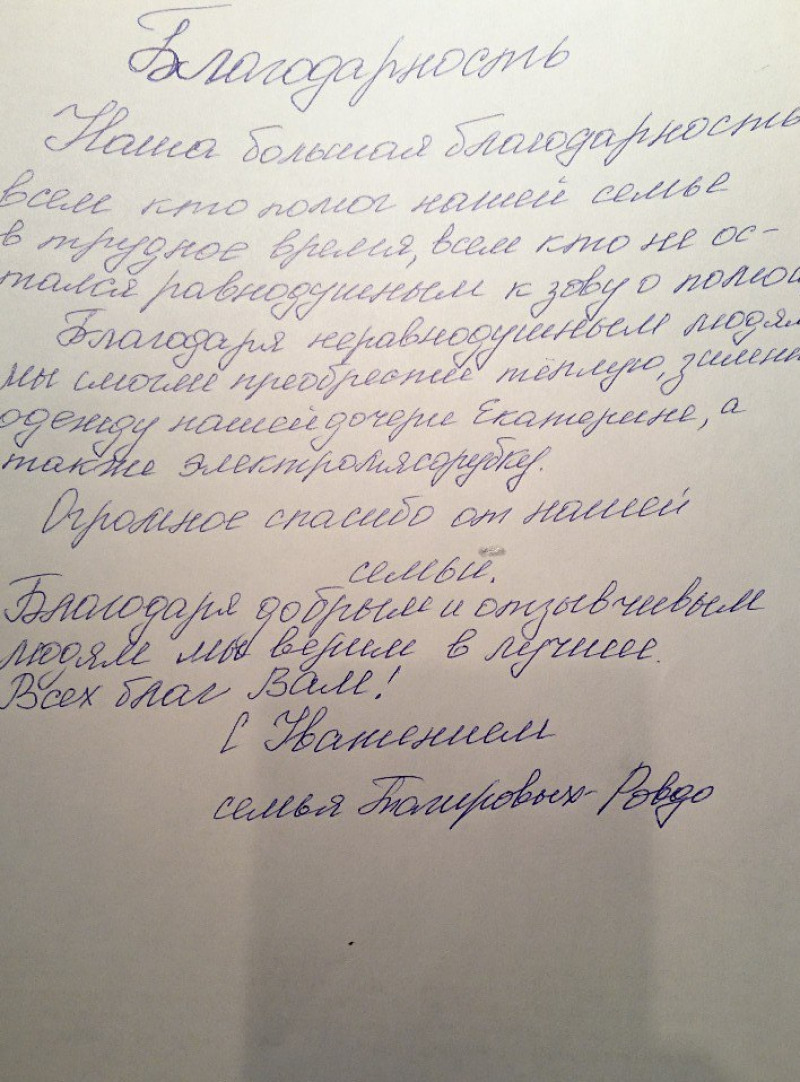 Благодарность
Наша большая благодарность
всем кто помог нашей семье
в трудное время, всем кто не ос-
тался равнодушным к зову о помощ
Благодаря неравнодушным людям
мы смогли преобрести тёплую, зимн
одежду нашей дочери Екатерине, а
также электромясорубку.
Огромное спасибо от нашей
семьи.
Благодаря добрым и отзывчивым
людям мы верим в лучшее.
Всех благ Вам!
С Уважением
семья Ровдо